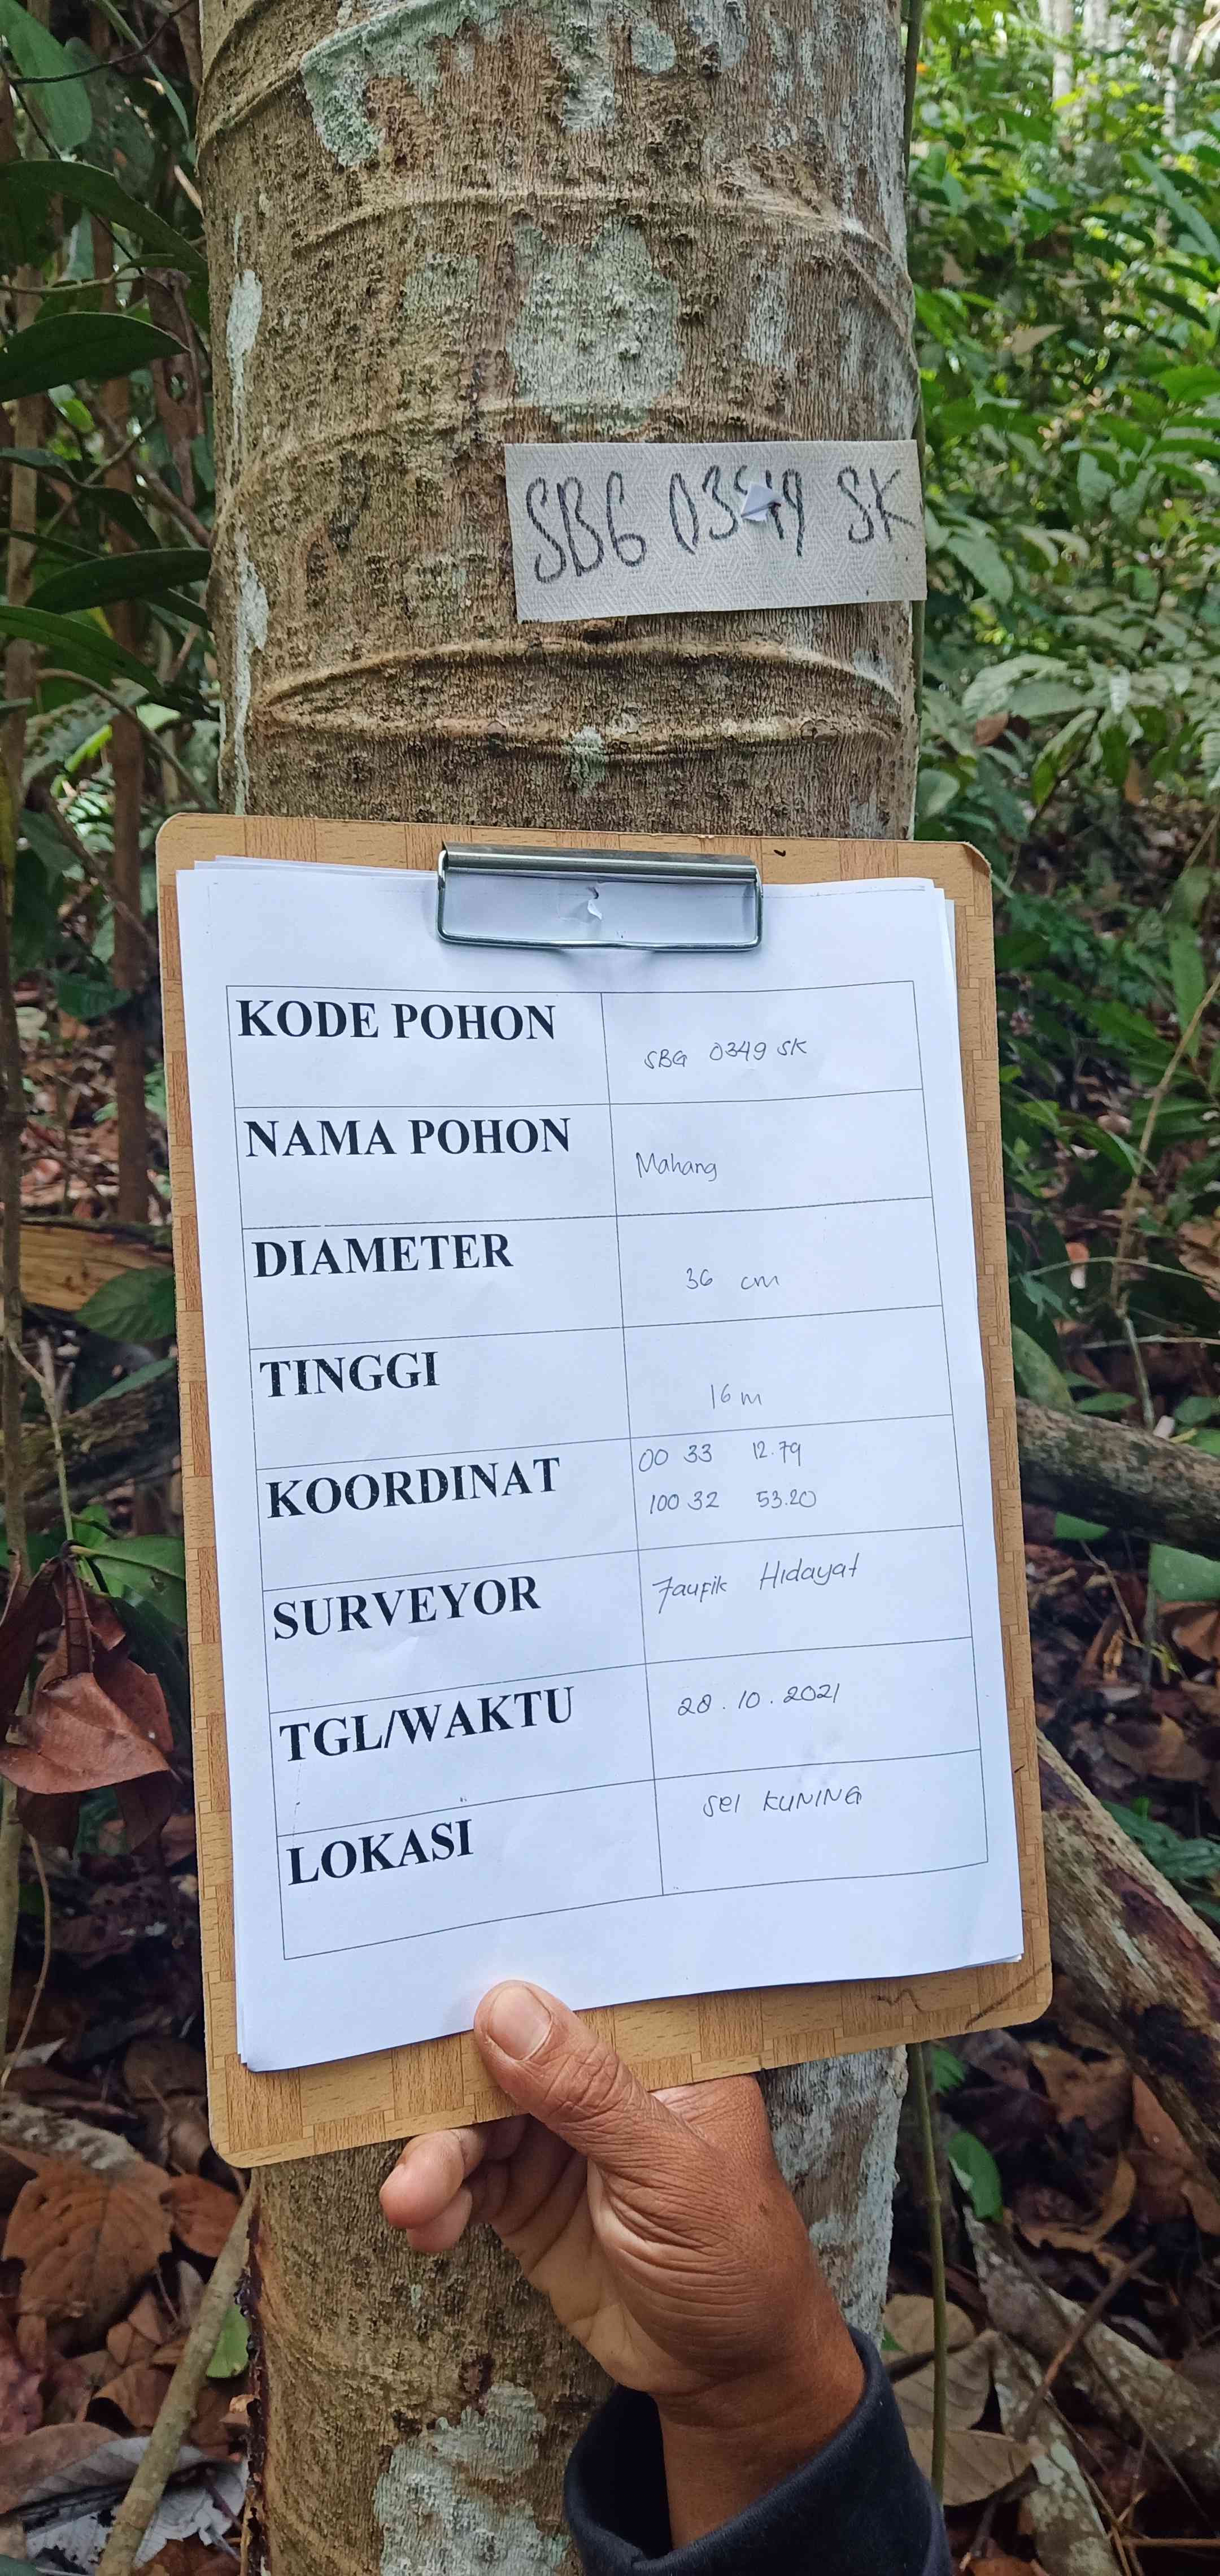 SBG 0349 SK
KODE POHON SBG 0349 SK
NAMA POHON Mahang
DIAMETER 36 cm
TINGGI 16 m
KOORDINAT 00 33 12.79
100 32 53.20
SURVEYOR Taufik Hidayat
TGL/WAKTU 28.10.2021
LOKASI sei KUNING